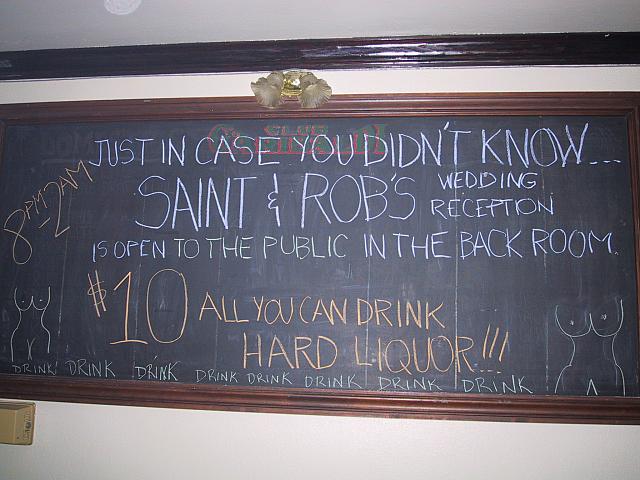 CLUB
JUST IN CASE YOU DIDN'T KNOW...
SAINT & ROB'S WEDDING RECEPTION
8PM-2AM
IS OPEN TO THE PUBLIC IN THE BACK ROOM.
$10 ALL YOU CAN DRINK
HARD LIQUOR!!!
DRINK! DRINK DRINK DRINK DRINK DRINK DRINK DRINK